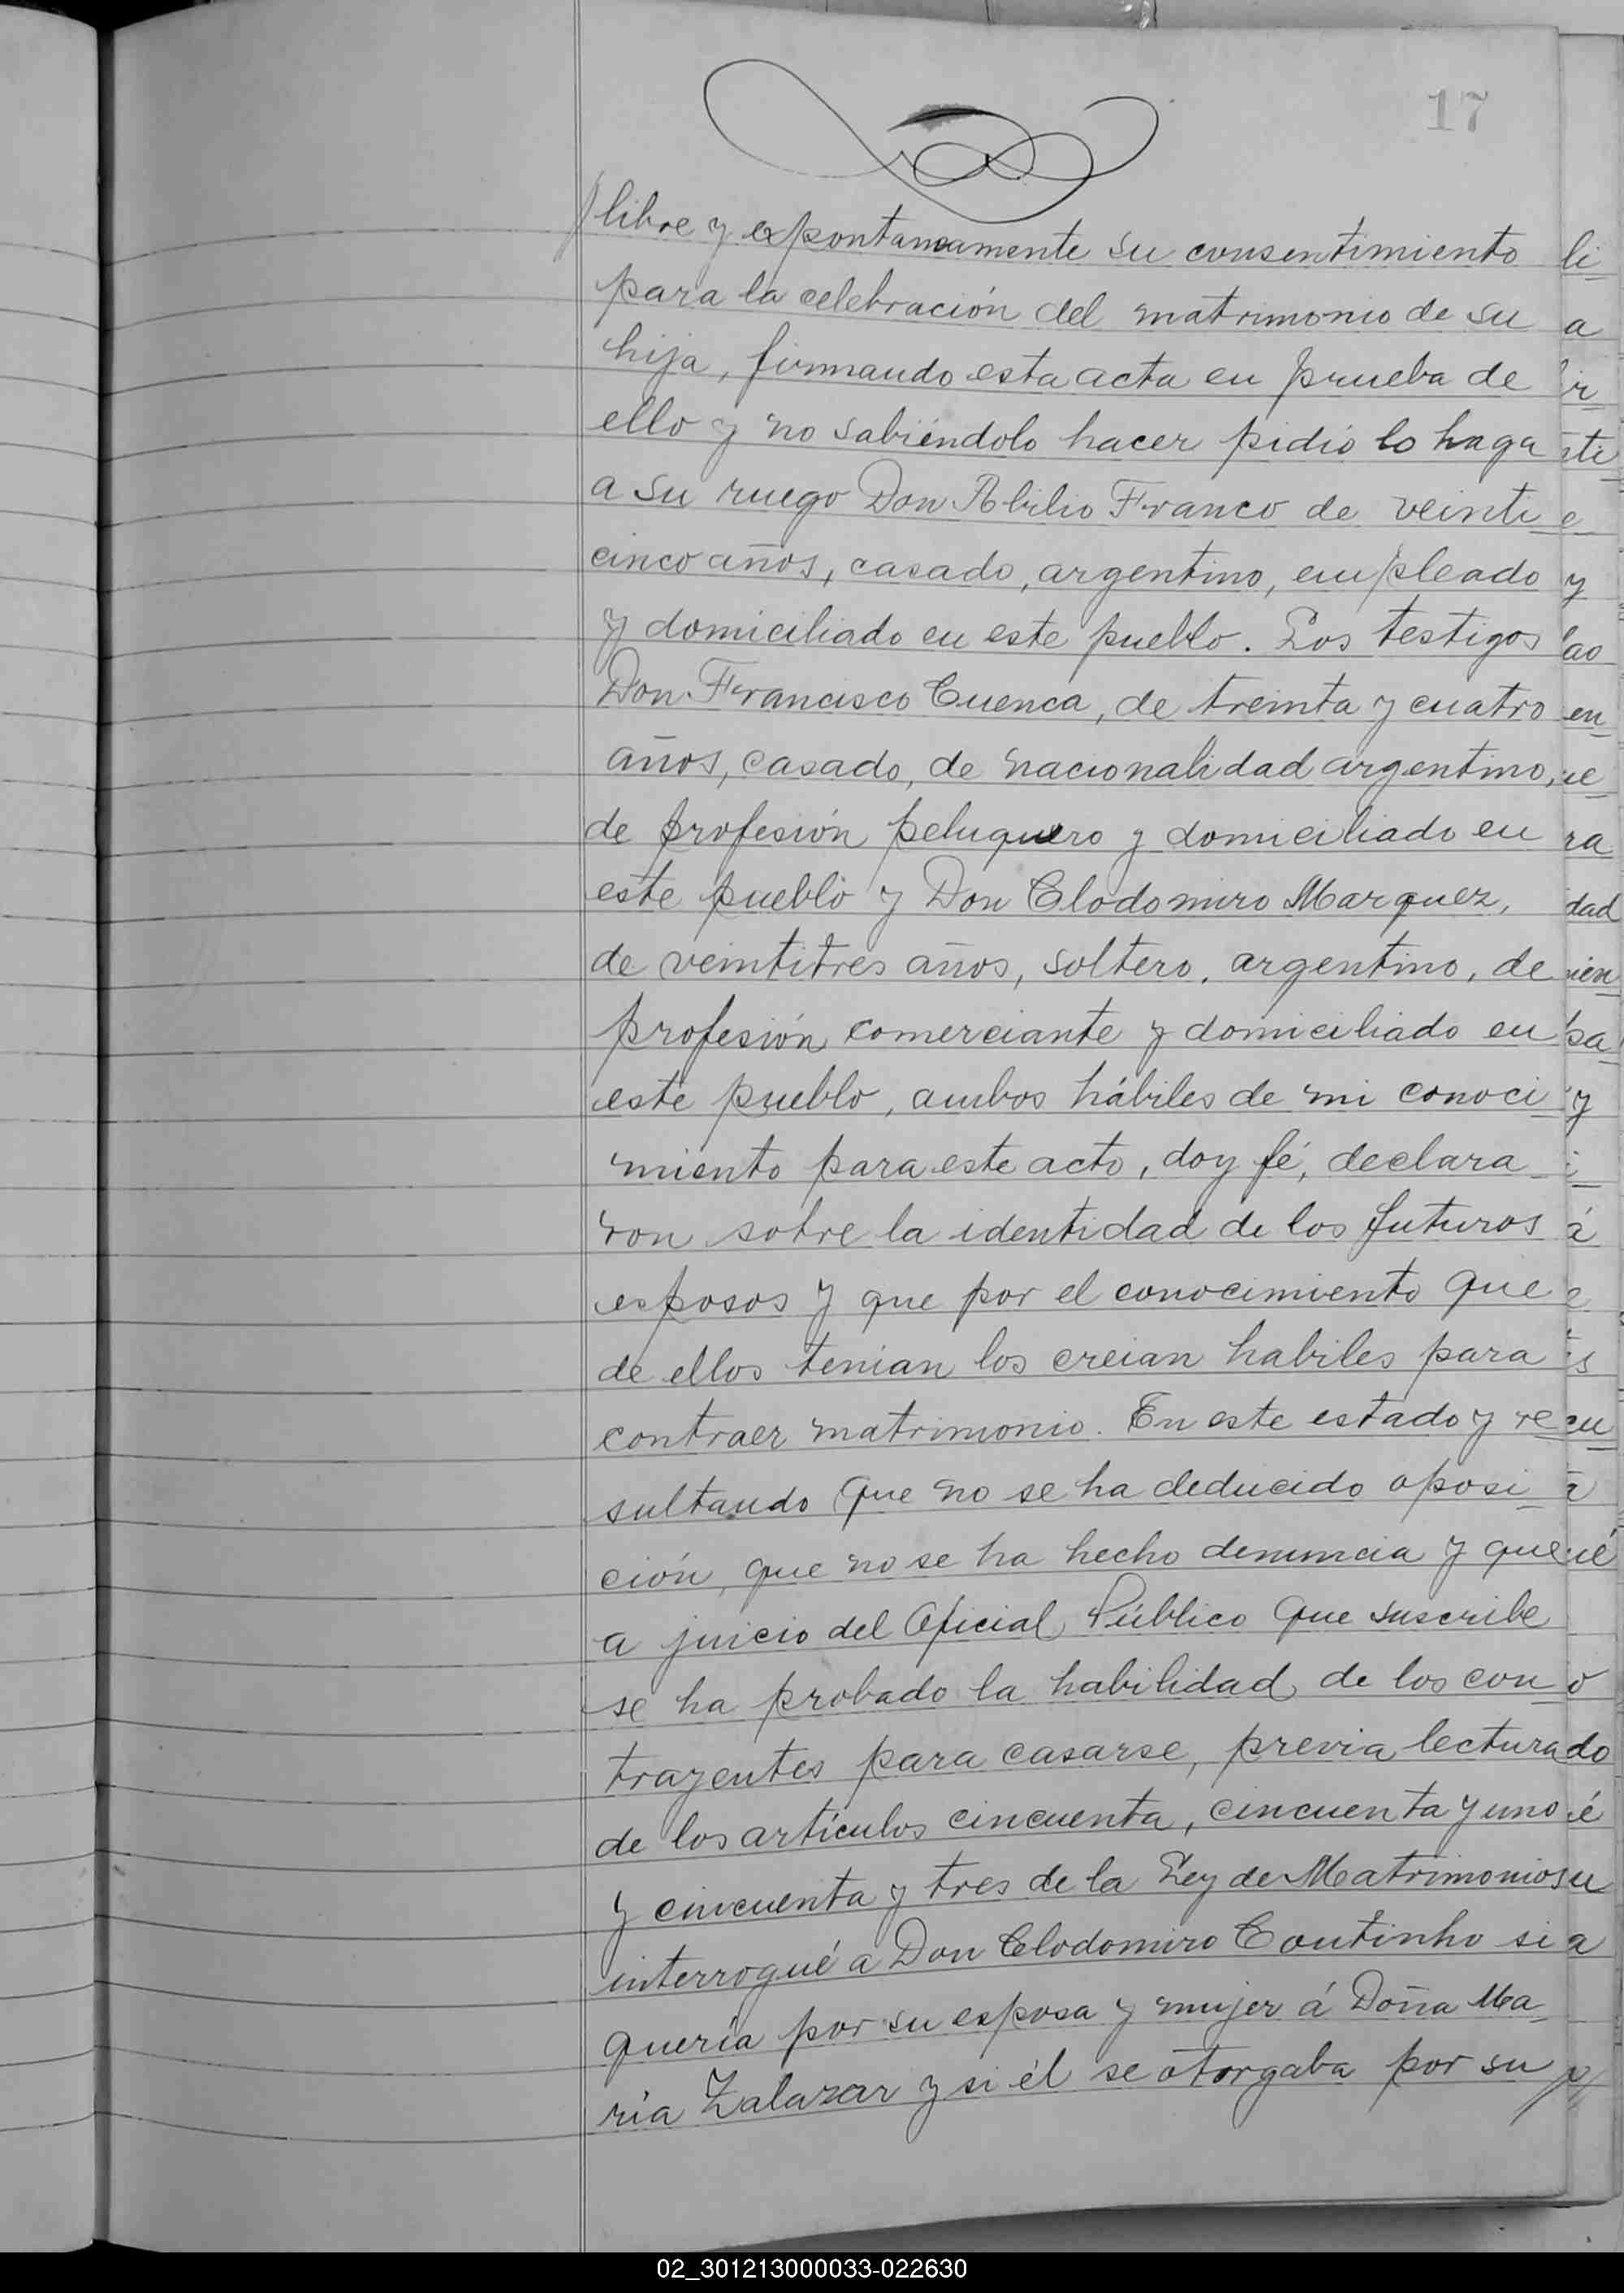 17
libre y expontaneamente su consentimiento
para la celebración del matrimonio de su
hija, firmando esta acta en prueba de
ello y no sabiéndolo hacer pidió lo haga
a su ruego Don Abilio Franco de veinti
cinco años, casado, argentino, empleado
y domiciliado en este pueblo. Los testigos
Don Francisco Cuenca, de treinta y cuatro
años, casado, de nacionalidad argentino,
de profesión peluquero y domiciliado en
este pueblo y Don Clodomiro Marquez,
de veintitres años, soltero, argentino, de
profesión comerciante y domiciliado en
este pueblo, ambos hábiles de mi conoci
miento para este acto, doy fé, declara
ron sobre la identidad de los futuros
esposos y que por el conocimiento que
de ellos tenian los creian habiles para
contraer matrimonio. En este estado y re
sultando que no se ha deducido oposi
ción, que no se ha hecho denuncia y que
a juicio del Oficial Público que suscribe
se ha probado la habilidad de los con
trayentes para casarse, previa lectura
de los artículos cincuenta, cincuenta y uno
y cincuenta y tres de la Ley de Matrimonios
interrogué a Don Clodomiro Coutinho si
queria por su esposa y mujer á Doña Ma
ria Zalazar y si él se otorgaba por su
02_301213000033-022630